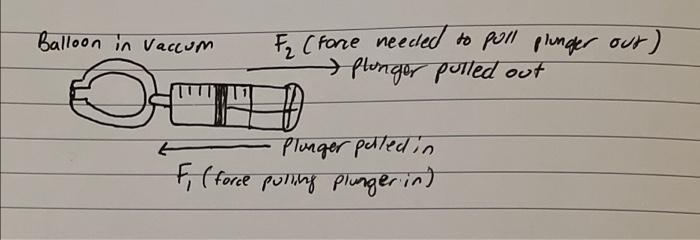 Balloon in Vaccum
F₂ (force needed to pull plunger out)
Plunger pulled out
Plunger pulled in
F₁ (force pulling plunger in)